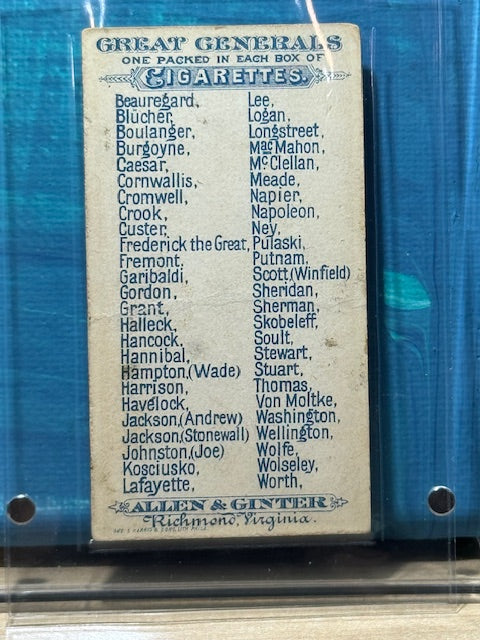 GREAT GENERALS
ONE PACKED IN EACH BOX OF
CIGARETTES.
Beauregard,
Blücher,
Boulanger,
Burgoyne,
Caesar,
Cornwallis,
Cromwell,
Crook,
Custer,
Frederick the Great,
Fremont,
Garibaldi,
Gordon,
Grant,
Halleck,
Hancock,
Hannibal,
Hampton,(Wade)
Harrison,
Havelock,
Jackson,(Andrew)
Jackson,(Stonewall)
Johnston,(Joe)
Kosciusko,
Lafayette,
Lee,
Logan,
Longstreet,
MacMahon,
McClellan,
Meade,
Napier,
Napoleon,
Ney,
Pulaski,
Putnam,
Scott,(Winfield)
Sheridan,
Sherman,
Skobeleff,
Soult,
Stewart,
Stuart,
Thomas,
Von Moltke,
Washington,
Wellington,
Wolfe,
Wolseley,
Worth,
ALLEN & GINTER
Richmond, Virginia.
LITH. PHILA.